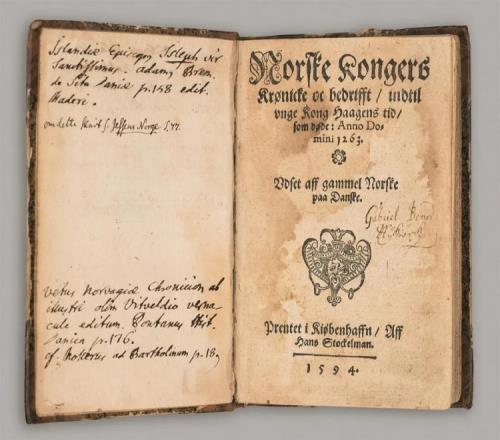 Islandiæ Episcop. Isleph vir
Sanctissimus. adam. Brem.
de Situ Daniæ p. 158 edit.
Maderi.
om dette
Vetus Norvagiæ Chronicon ab
illustri olim Vitveldio verna-
cule editum. Pontanus Hist.
Danica p. 176.
cf. ad Bartholinum p. 18.
Norske Kongers
Krønicke oc bedrifft / indtil
vnge Kong Haagens tid /
som døde: Anno Do-
mini 1263.
Vdset aff gammel Norske
paa Danske.
Gabriel
Prentet i Kiøbenhaffn / Aff
Hans Stockelman.
1594.